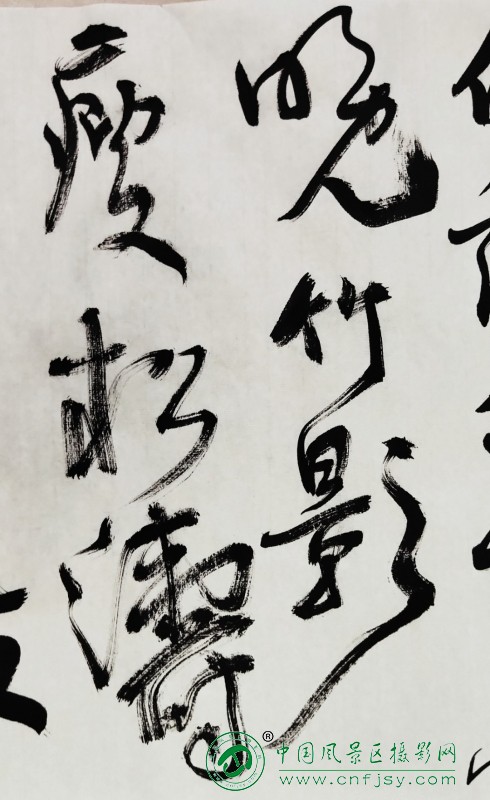 晚竹影
瘦松濤
中国风景区摄影网
www.cnfjsy.com
®